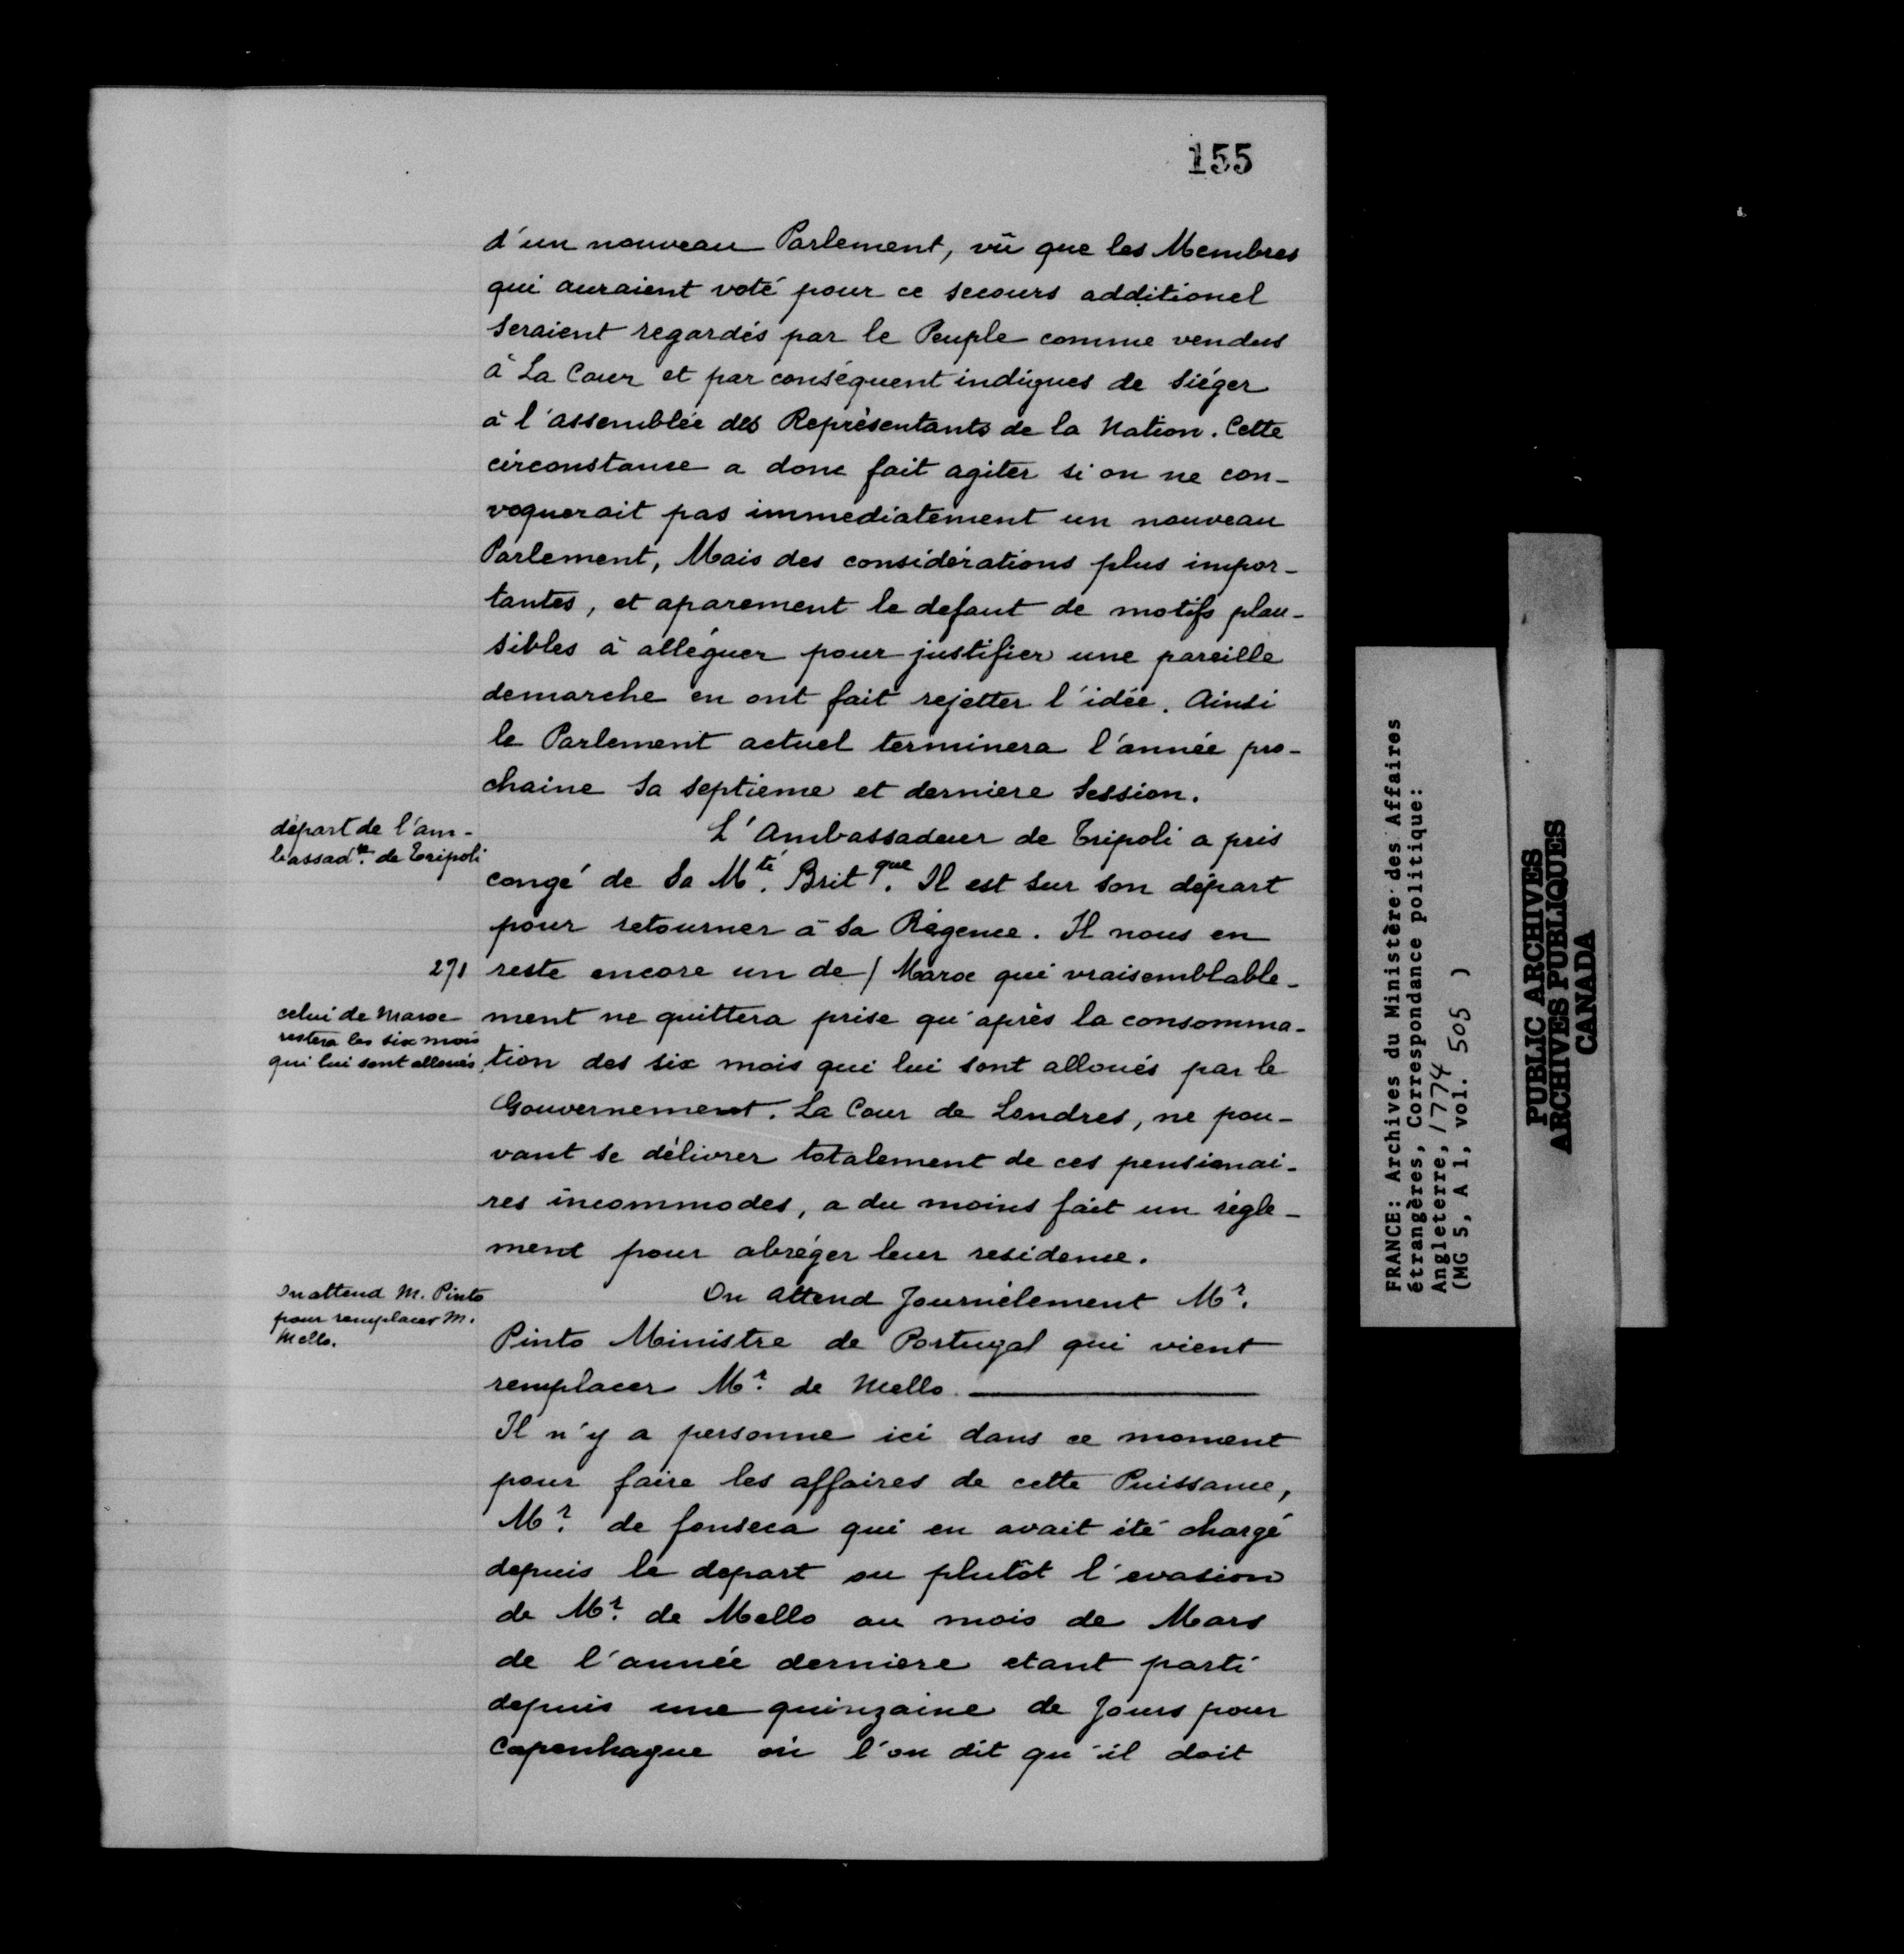 155
d'un nouveau Parlement, vû que les Membres
qui auraient voté pour ce secours additionel
seraient regardés par le Peuple comme vendus
à La Cour et par conséquent indignes de siéger
à l'assemblée des Représentants de la Nation. Cette
circonstance a donc fait agiter si on ne con-
voquerait pas immediatement un nouveau
Parlement, Mais des considérations plus impor-
tantes, et aparement le defaut de motifs plau-
sibles à alléguer pour justifier une pareille
demarche en ont fait rejetter l'idée. Ainsi
le Parlement actuel terminera l'année pro-
chaine sa septieme et derniere Session.
départ de l'am-
bassad.r de Tripoli
L'Ambassadeur de Tripoli a pris
congé de Sa M.té Brit.que Il est sur son départ
pour retourner à sa Régence. Il nous en
271
reste encore un de / Maroc qui vraisemblable-
celui de Maroc
restera les six mois
qui lui sont alloués.
ment ne quittera prise qu'après la consomma-
tion des six mois qui lui sont alloués par le
Gouvernement. La Cour de Londres, ne pou-
vant se délivrer totalement de ces pensionai-
res incommodes, a du moins fait un régle-
ment pour abréger leur residence.
On attend M. Pinto
pour remplacer M.
Mello.
On attend Journélement M.r
Pinto Ministre de Portugal qui vient
remplacer M.r de Mello
Il n'y a personne ici dans ce moment
pour faire les affaires de cette Puissance,
M.r de fonseca qui en avait été chargé
depuis le depart ou plutôt l'evasion
de M.r de Mello au mois de Mars
de l'année derniere etant parti
depuis une quinzaine de Jours pour
Copenhague où l'on dit qu'il doit
FRANCE: Archives du Ministère des Affaires
étrangères, Correspondance politique:
Angleterre, 1774
(MG 5, A 1, vol. 505 )
PUBLIC ARCHIVES
ARCHIVES PUBLIQUES
CANADA